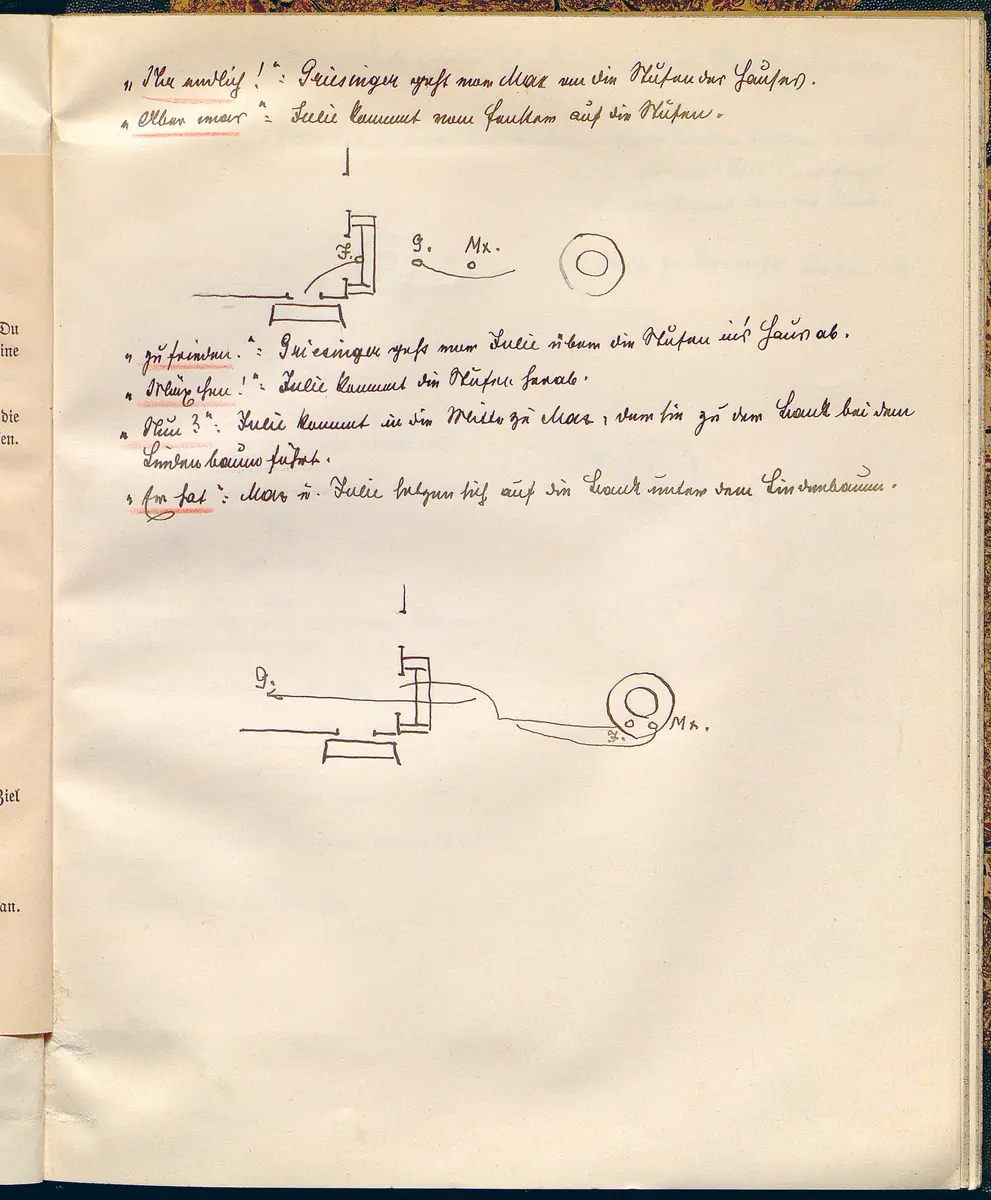 Du
ine
die
en.
Ziel
an.
„Ihr endlich!": Griesinger geht von Max an die Stufen des Hauses.
„Aber": Julie kommt vom Fenster auf die Stufen.
G.
Mx.
„zufrieden.": Griesinger geht von Julie über die Stufen in's Haus ab.
„Mäxchen!": Julie kommt die Stufen herab.
„Nun?": Julie kommt in die Mitte zu Max, der sie zu der Bank bei dem
Lindenbaum führt.
„Er hat": Max u. Julie setzen sich auf die Bank unter dem Lindenbaum.
G.
Mx.